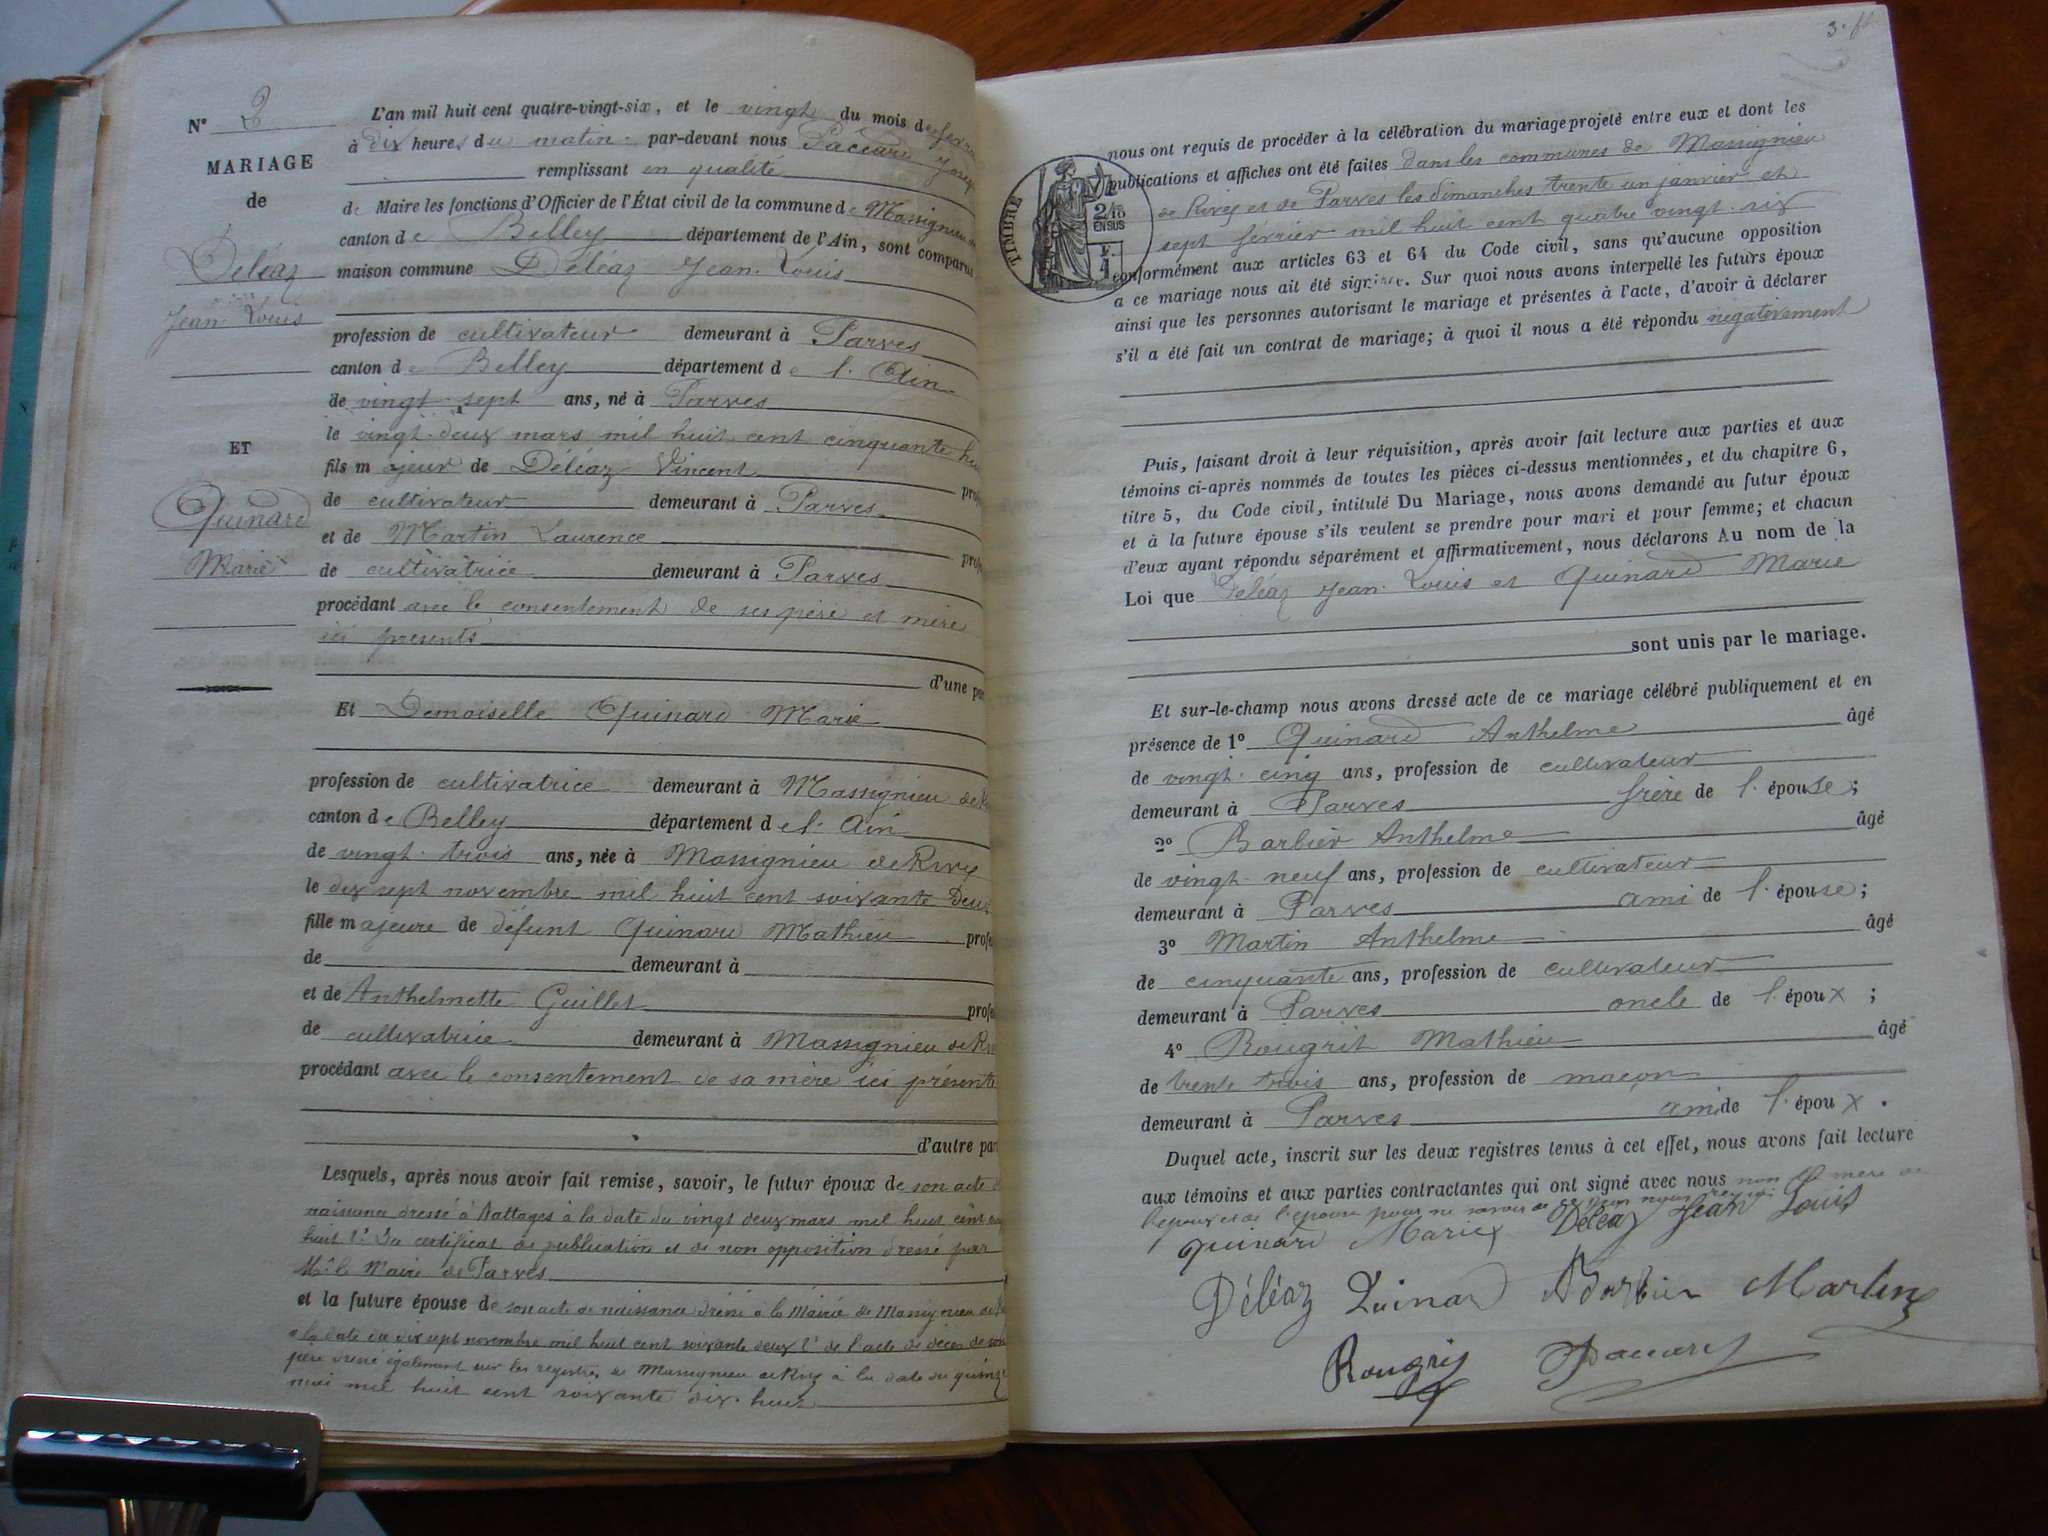 N° 2
MARIAGE
de
Deléaz
Jean Louis
ET
Quinard
Marie
L'an mil huit cent quatre-vingt-six, et le vingt du mois de
à dix heures du matin par-devant nous Paccard Joseph
remplissant en qualité
de Maire les fonctions d'Officier de l'État civil de la commune de Massignieu
canton de Belley département de l'Ain, sont comparus
maison commune Déléaz Jean Louis
profession de cultivateur demeurant à Parves
canton de Belley département de l'Ain
de vingt sept ans, né à Parves
le vingt deux mars mil huit cent cinquante
fils majeur de Déléaz Vincent
de cultivateur demeurant à Parves
et de Martin Laurence
de cultivatrice demeurant à Parves
procédant avec le consentement de ses père et mère
ici présents
d'une
Et Demoiselle Quinard Marie
profession de cultivatrice demeurant à Massignieu de
canton de Belley département de l'Ain
de vingt trois ans, née à Massignieu de Rives
le dix sept novembre mil huit cent soixante Deux
fille majeure de défunt Quinard Mathieu
de demeurant à
et de Anthelmette Guillet
de cultivatrice demeurant à Massignieu de
procédant avec le consentement de sa mère ici présente
d'autre
Lesquels, après nous avoir fait remise, savoir, le futur époux de son acte
naissance dressé à Nattages à la date du vingt deux mars mil huit cent
huit 2° Du certificat de publication et de non opposition dressé par
Mr le Maire de Parves
et la future épouse de son acte de naissance dressé à la Mairie de Massignieu de
à la date du dix sept novembre mil huit cent soixante deux 2° de l'acte de décès de son
père dressé également sur les registres de Massignieu de Rives à la date du quinze
mai mil huit cent soixante dix huit
3.
TIMBRE
2/10
EN SUS
nous ont requis de procéder à la célébration du mariage projeté entre eux et dont les
publications et affiches ont été faites dans les communes de Massignieu
de Rives et de Parves les dimanches trente un janvier et
sept février mil huit cent quatre vingt six
conformément aux articles 63 et 64 du Code civil, sans qu'aucune opposition
a ce mariage nous ait été signifiée. Sur quoi nous avons interpellé les futurs époux
ainsi que les personnes autorisant le mariage et présentes à l'acte, d'avoir à déclarer
s'il a été fait un contrat de mariage; à quoi il nous a été répondu négativement
Puis, faisant droit à leur réquisition, après avoir fait lecture aux parties et aux
témoins ci-après nommés de toutes les pièces ci-dessus mentionnées, et du chapitre 6,
titre 5, du Code civil, intitulé Du Mariage, nous avons demandé au futur époux
et à la future épouse s'ils veulent se prendre pour mari et pour femme; et chacun
d'eux ayant répondu séparément et affirmativement, nous déclarons Au nom de la
Loi que Deléaz Jean Louis et Quinard Marie
sont unis par le mariage.
Et sur-le-champ nous avons dressé acte de ce mariage célébré publiquement et en
présence de 1° Quinard Anthelme âgé
de vingt cinq ans, profession de cultivateur
demeurant à Parves frère de l'épouse;
2° Barbier Anthelme âgé
de vingt neuf ans, profession de cultivateur
demeurant à Parves ami de l'épouse;
3° Martin Anthelme âgé
de cinquante ans, profession de cultivateur
demeurant à Parves oncle de l'époux;
4° Rougrit Mathieu âgé
de trente trois ans, profession de maçon
demeurant à Parves ami de l'époux.
Duquel acte, inscrit sur les deux registres tenus à cet effet, nous avons fait lecture
aux témoins et aux parties contractantes qui ont signé avec nous non la mère de
l'époux et de l'épouse pour ne savoir de ce par nous requis
quinard Marie Déléaz Jean Louis
Déléaz Quinard Barbier Martin
Rougrit Paccard